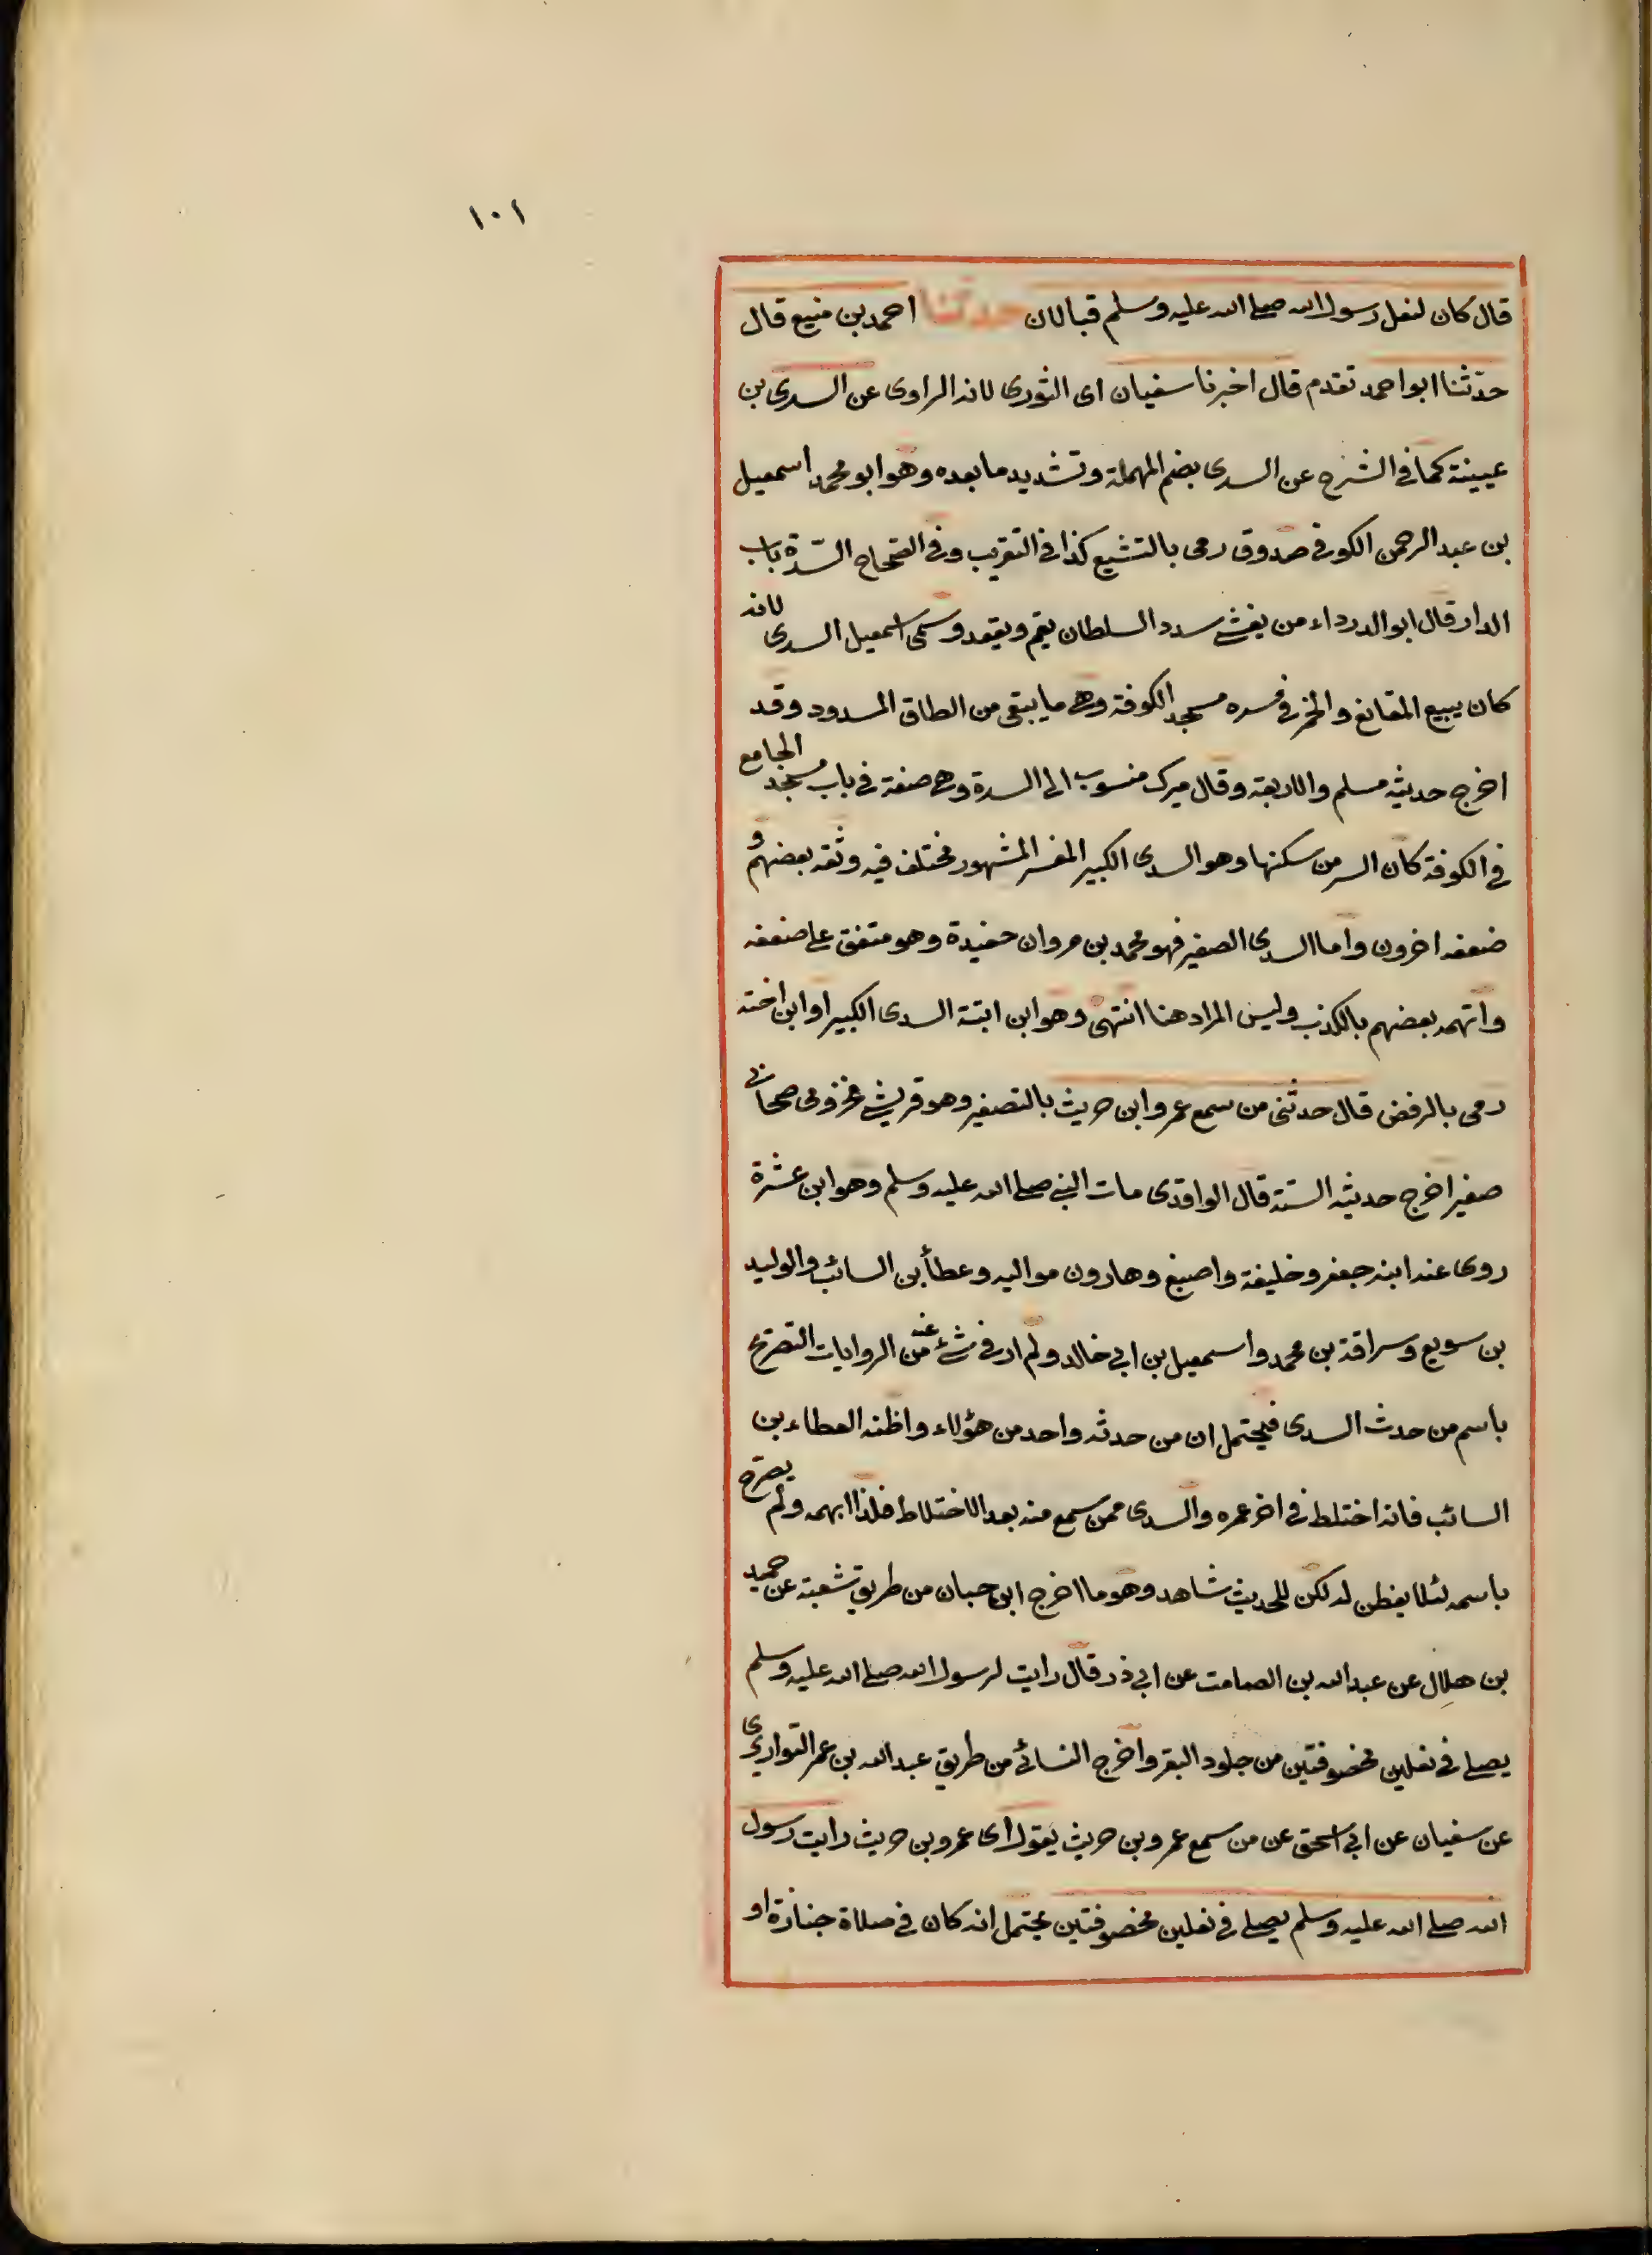 ١٠١
قال كان لنعل رسول الله صلى الله عليه وسلم قبالان حدثنا احمد بن منيع قال
حدّثنا ابو احمد تقدم قال اخبرنا سفيان اى الثورى لانه الراوى عن السدى بن
عيينة كما فى الشرح عن السدى بضم المهملة وتشديد ما بعده وهو ابو محمد اسمعيل
بن عبد الرحمن الكوفى صدوق رمى بالتشيع كذا فى التقريب وفى الصّحاح السّدّة باب
الدار قال ابو الدرداء من يغش سدد السلطان يقم ويقعد وسمى اسمعيل السدى لانه
كان يبيع المقانع والخمر فى سده مسجد الكوفة وهى ما يبقى من الطاق المسدود وقد
اخرج حديثه مسلم والاربعة وقال ميرك منسوب الى السدة وهى صفة فى باب مسجد الجامع
فى الكوفة كان السر من سكنها وهو السدى الكبير المفسر المشهور مختلف فيه وثقه بعضهم و
ضعفه اخرون واما السدى الصغير فهو محمد بن مروان حفيدة وهو متفق على ضعفه
واتهمه بعضهم بالكذب وليس المراد هنا انتهى وهو ابن ابنة السدى الكبير او ابن اخته
رمى بالرفض قال حدثنى من سمع عمرو ابن حريث بالتصغير وهو قريشى مخزومى صحابى
صغير اخرج حديثه الستة قال الواقدى مات النبى صلى الله عليه وسلم وهو ابن عشرة
روى عنه ابنه جعفر وخليفة واصبغ وهارون مواليه وعطأ بن السائب والوليد
بن سويع وسراقة بن محمد واسمعيل بن ابى خالد ولم ار فى شئ عنه من الروايات التصريح
باسم من حدث السدى فيحتمل ان من حدثه واحد من هؤلاء واظنه العطاء بن
السائب فانه اختلط فى اخر عمره والسدى ممن سمع منه بعد الاختلاط فلذا ابهمه ولم يصرح
باسمه لئلا يفطن له لكن للحديث شاهد وهو ما اخرج ابن حبان من طريق شعبة عن حميد
بن هلال عن عبد الله بن الصامت عن ابى ذر قال رايت لرسول الله صلى الله عليه وسلم
يصلى فى نعلين مخصوفتين من جلود البقر واخرج النسائى من طريق عبد الله بن عمر القواريرى
عن سفيان عن ابى اسحق عن من سمع عمرو بن حريث يقول اى عمرو بن حريث رايت رسول
الله صلى الله عليه وسلم يصلى فى نعلين مخصوفتين يحتمل انه كان فى صلاة جنازة او